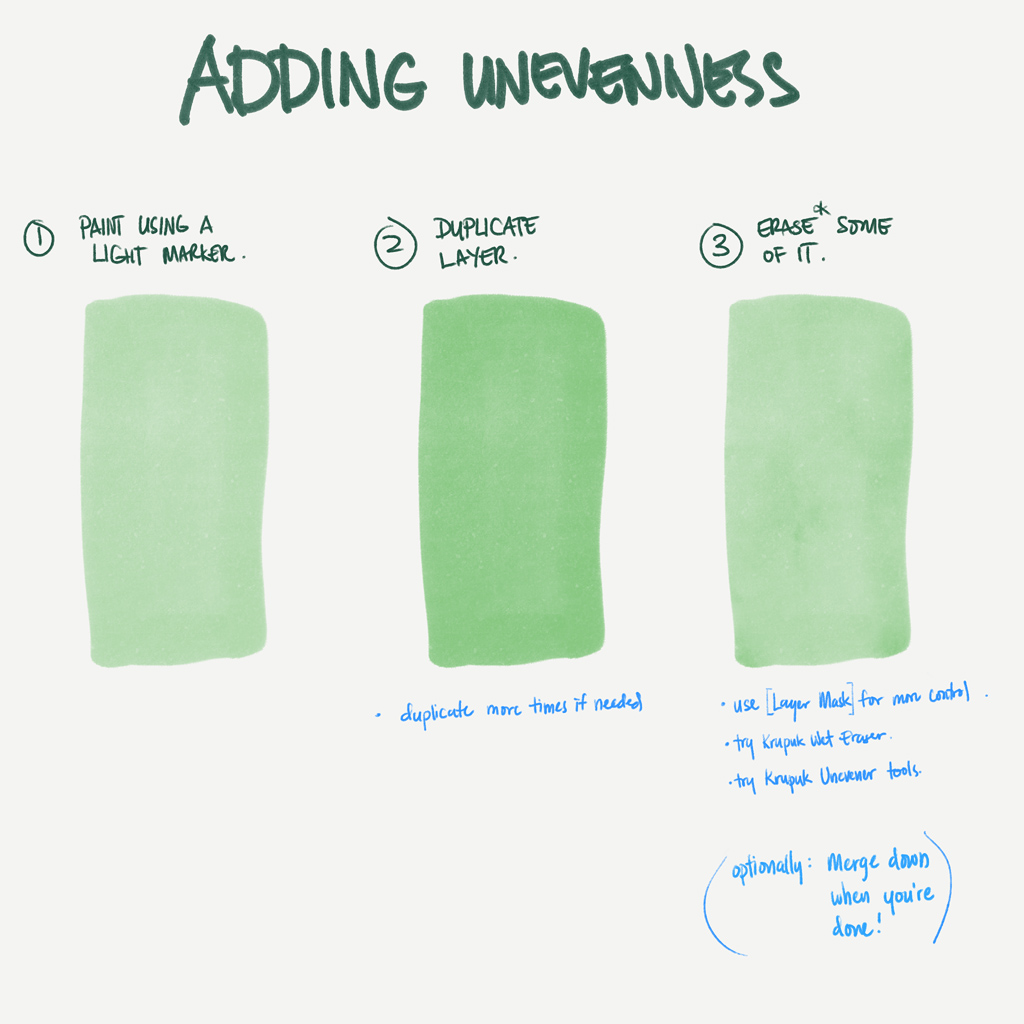 ADDING UNEVENNESS
1 PAINT USING A
LIGHT MARKER.
2 DUPLICATE
LAYER.
• duplicate more times if needed
3 ERASE* SOME
OF IT.
• use [Layer Mask] for more control.
• try Krupuk Wet Eraser.
• try Krupuk Unevener tools.
(optionally: Merge down
when you're
done!)